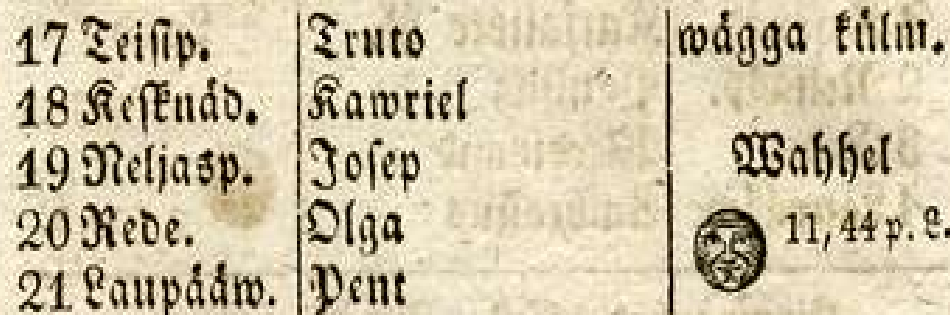 17 Teisip. Truto wägga külm.
18 Kesknäd. Kawriel
19 Neljasp. Josep Wahhel
20 Rede. Olga 11,44 p. L.
21 Laupääw. Pent